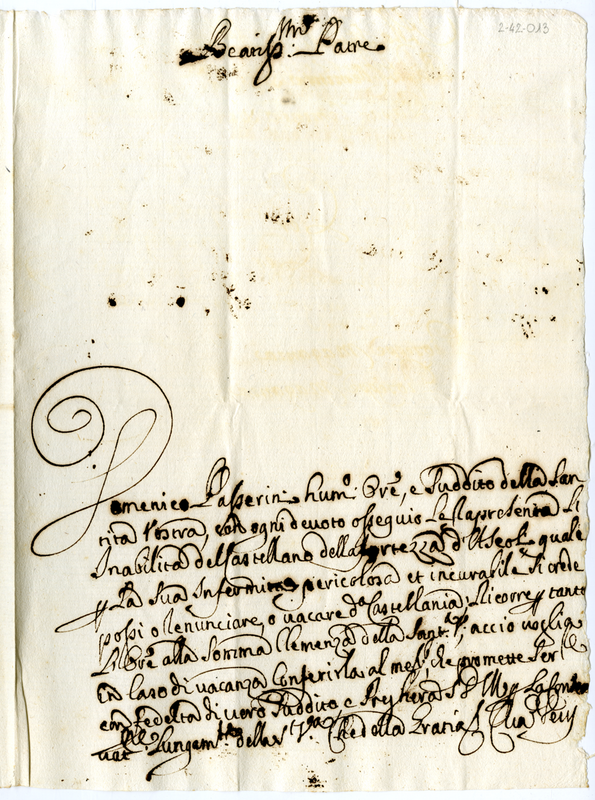 2-42-013
Beatiss.mo Padre
Domenico Passerini hum.o Ore, e Suddito della San
tità Vostra, con ogni devoto ossequio Le Rapresenta Li
Inabilità del Castellano della Fortezza d'Ascoli quale
La Sua Infermità pericolosa et incurabile Si crede
possi o Renunciare, o vacare d.a Castellania; Ricorre tanto
L'Ore alla Somma Clemenza della Sant.à V., accio voglia
in Caso di vacanza Conferirla al med.o che promette Ser
con fedeltà di vero Suddito e Pregherà S. D. M.
Lungam.te della S.tà V.ra Che della Gratia